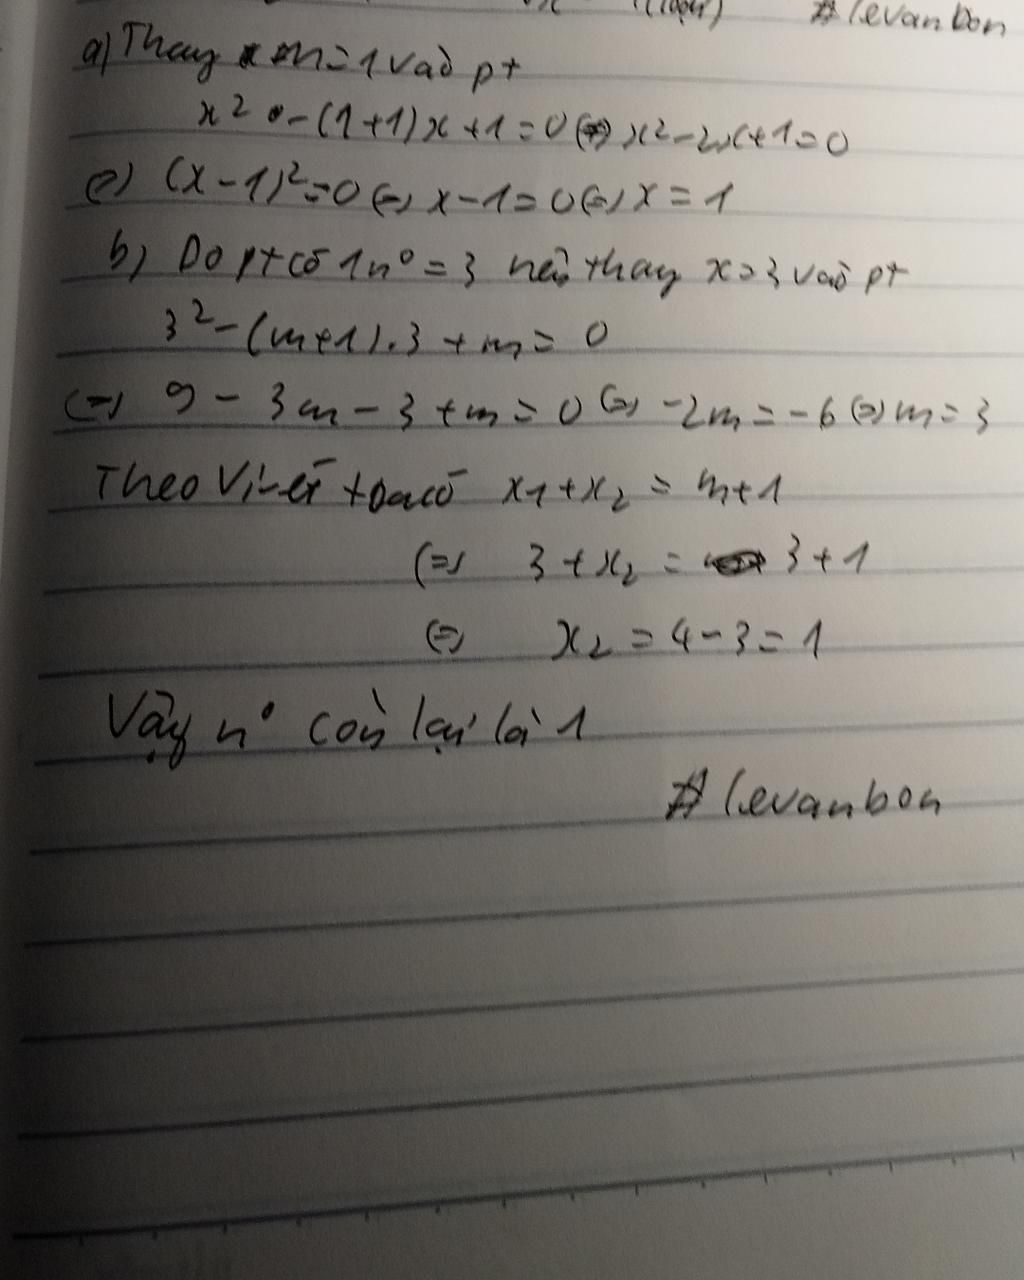 (loại) # levanbon
a) Thay m=1 vào pt
x² - (1+1)x+1=0 (=) x²-2x+1=0
(=) (x-1)²=0 (=) x-1=0 (=) x=1
b) Do pt có 1 n° = 3 nên thay x=3 vào pt
3² - (m+1).3 + m = 0
(=) 9 - 3m - 3 + m = 0 (=) -2m = -6 (=) m = 3
Theo Vi-ét ta có x1+x2 = m+1
(=) 3 + x2 = 3+1
(=) x2 = 4-3 = 1
Vậy n° còn lại là 1
# levanbon